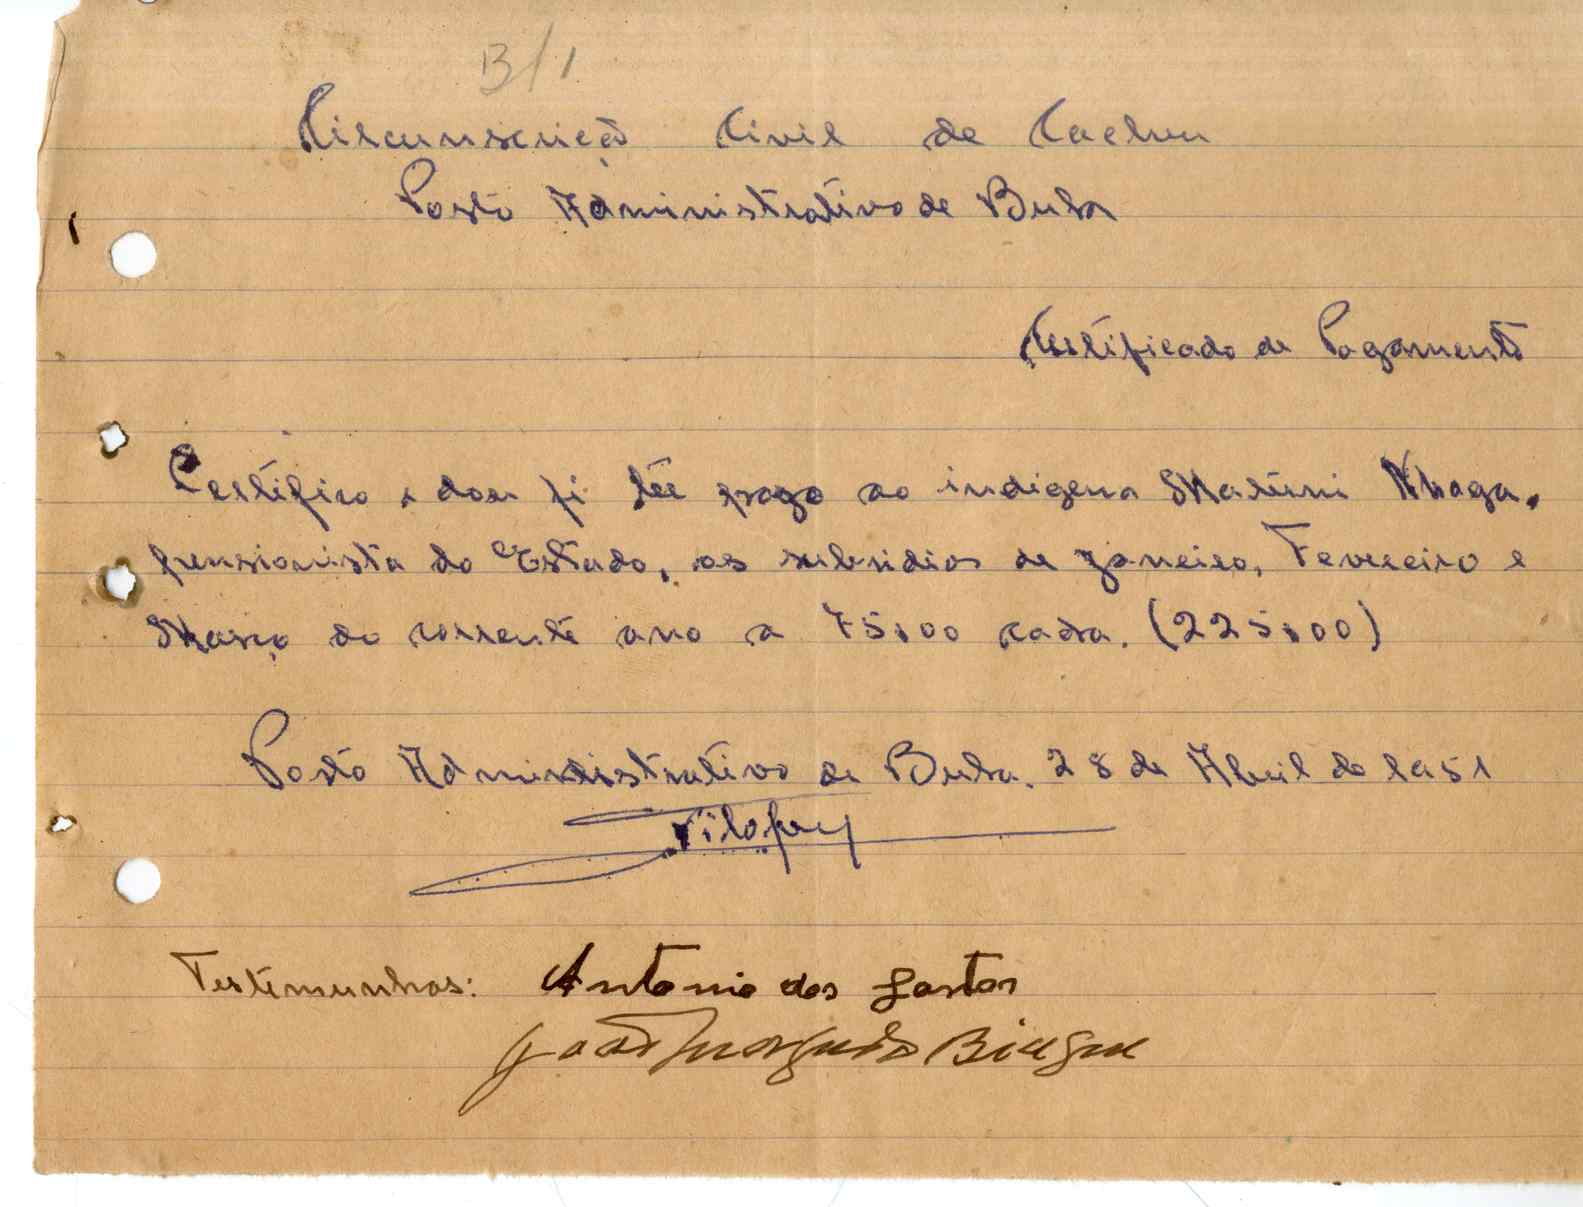 B/1
Circunscrição Civil de Cacheu
Posto Administrativo de Bula
Certificado de Pagamento
Certifico e dou fé ter pago ao indigena Matuni Nhaga,
pensionista do Estado, os subsidios de janeiro, Fevereiro e
Março do corrente ano a 75$00 cada. (225$00)
Posto Administrativo de Bula. 28 de Abril de 1951
Testemunhas: Antonio dos Santos
João